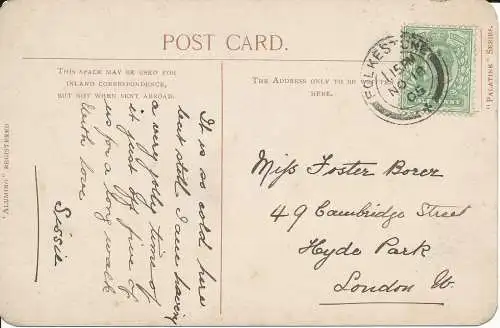 POST CARD.
THIS SPACE MAY BE USED FOR
INLAND CORRESPONDENCE,
BUT NOT WHEN SENT ABROAD.
THE ADDRESS ONLY TO BE
HERE.
It is so cold here
but still I am having
a very jolly time of
it just off five of
us for a long walk
With love
Sissie
Miss Foster Borer
49 Cambridge Street
Hyde Park
London W.
FOLKESTONE
15PM
NO 16
05
"PALATINE" SERIES.
"ALUMINO" REGISTERED